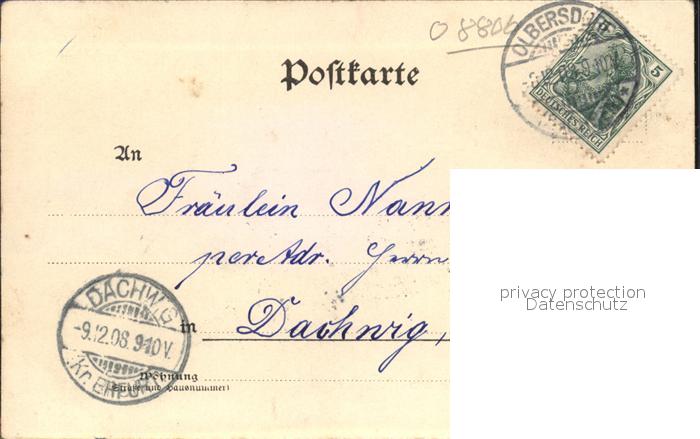 O 8806
Postkarte
OLBERSDORF
5
DEUTSCHES REICH
An
Fräulein Nann
per Adr. Herrn
privacy protection
Datenschutz
DACHWIG
-9.12.08 9-10V.
(Kr. ERFURT)
in Dachwig,
Wohnung
(Straße und Hausnummer)